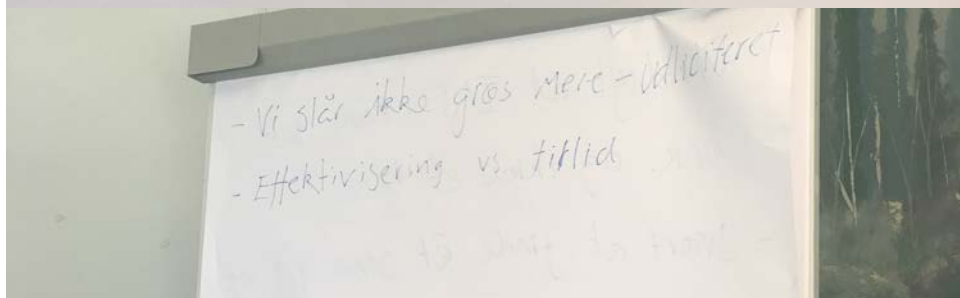 - Vi slår ikke græs mere - udliciteret
- Effektivisering vs tillid